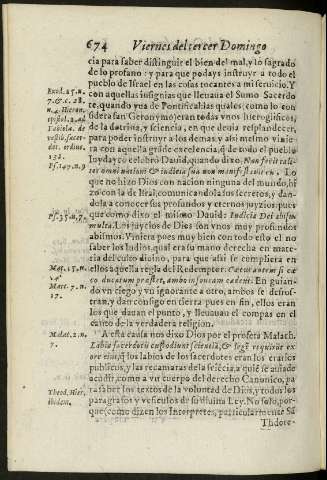 674 Viernes del tercer Domingo
cia para saber distinguir el bien del mal, y lo sagrado
de lo profano: y para que podays instruyr a todo el
pueblo de Israel en las cosas tocantes a mi seruicio. Y
con aquellas insignias que lleuaua el Sumo Sacerdo
te, quando yua de Pontifical: las quales, como lo con
sidera san Geronymo) eran todas vnos hieroglificos,
de la dotrina, y sciencia, en que deuia resplandecer,
para poder instruyr a los demas: y assi mismo viuia
ra con aquella grãde excelencia, q̃ de todo el pueblo
Iudayco celebrò Dauid, quando dixo. Non fecit tali-
ter omni nationi & iudicia sua non manifestauit eis. Lo
que no hizo Dios con nacion ninguna del mundo, hi
zo con la de Israel, comunicandola sus secretos, y dan-
dola a conocer sus profundos y eternos juyzios, pues
que como dixo el mismo Dauid: Iudicia Dei abissus
multa. Los juyzios de Dios son vnos muy profundos
abismos. Viniera pues muy bien con todo esto el no
saber los Indios, qual era su mano derecha en mate-
ria del culto diuino, para que assi se compliera en
ellos aquella regla del Redemptor. Cæcus autem si cæ
co ducatum præstet, ambo in foueam cadent. En guian-
do vn ciego y vn ignorante a otro, ambos se despe-
ñan, y dan consigo en tierra pues en fin, ellos eran
los que dauan el punto, y lleuauan el compas en el
canto de la verdadera religion.
A esta causa nos dixo Dios por el profeta Malach.
Labia sacerdotis custodient scientiã, & legẽ requirẽt ex
ore eius, q̃ los labios de los sacerdotes eran los erarios
publicos, y las recamaras de la sciẽcia, a quiẽ se auia de
acudir, como a vn cuerpo del derecho Canonico, pa
ra saber los textos de la voluntad de Dios, y todos los
paragrafos y vesiculos de su diuina Ley. No solo, por-
que (como dizen los Interpretes, particularmente Sã
Thdore-
Exod. 25. n.
7. & c. 28.
n. 4. Hieron.
epistol. 2. ad
Fabiola. de
vestib. sacer-
dot. ordine.
132.
Ps. 147. n. 9
Ps. 35. n. 7.
Mat. 15. n.
14.
Matt. 7. n.
17.
Malat. 2. n.
7.
Theod. Hier.
ibidem.